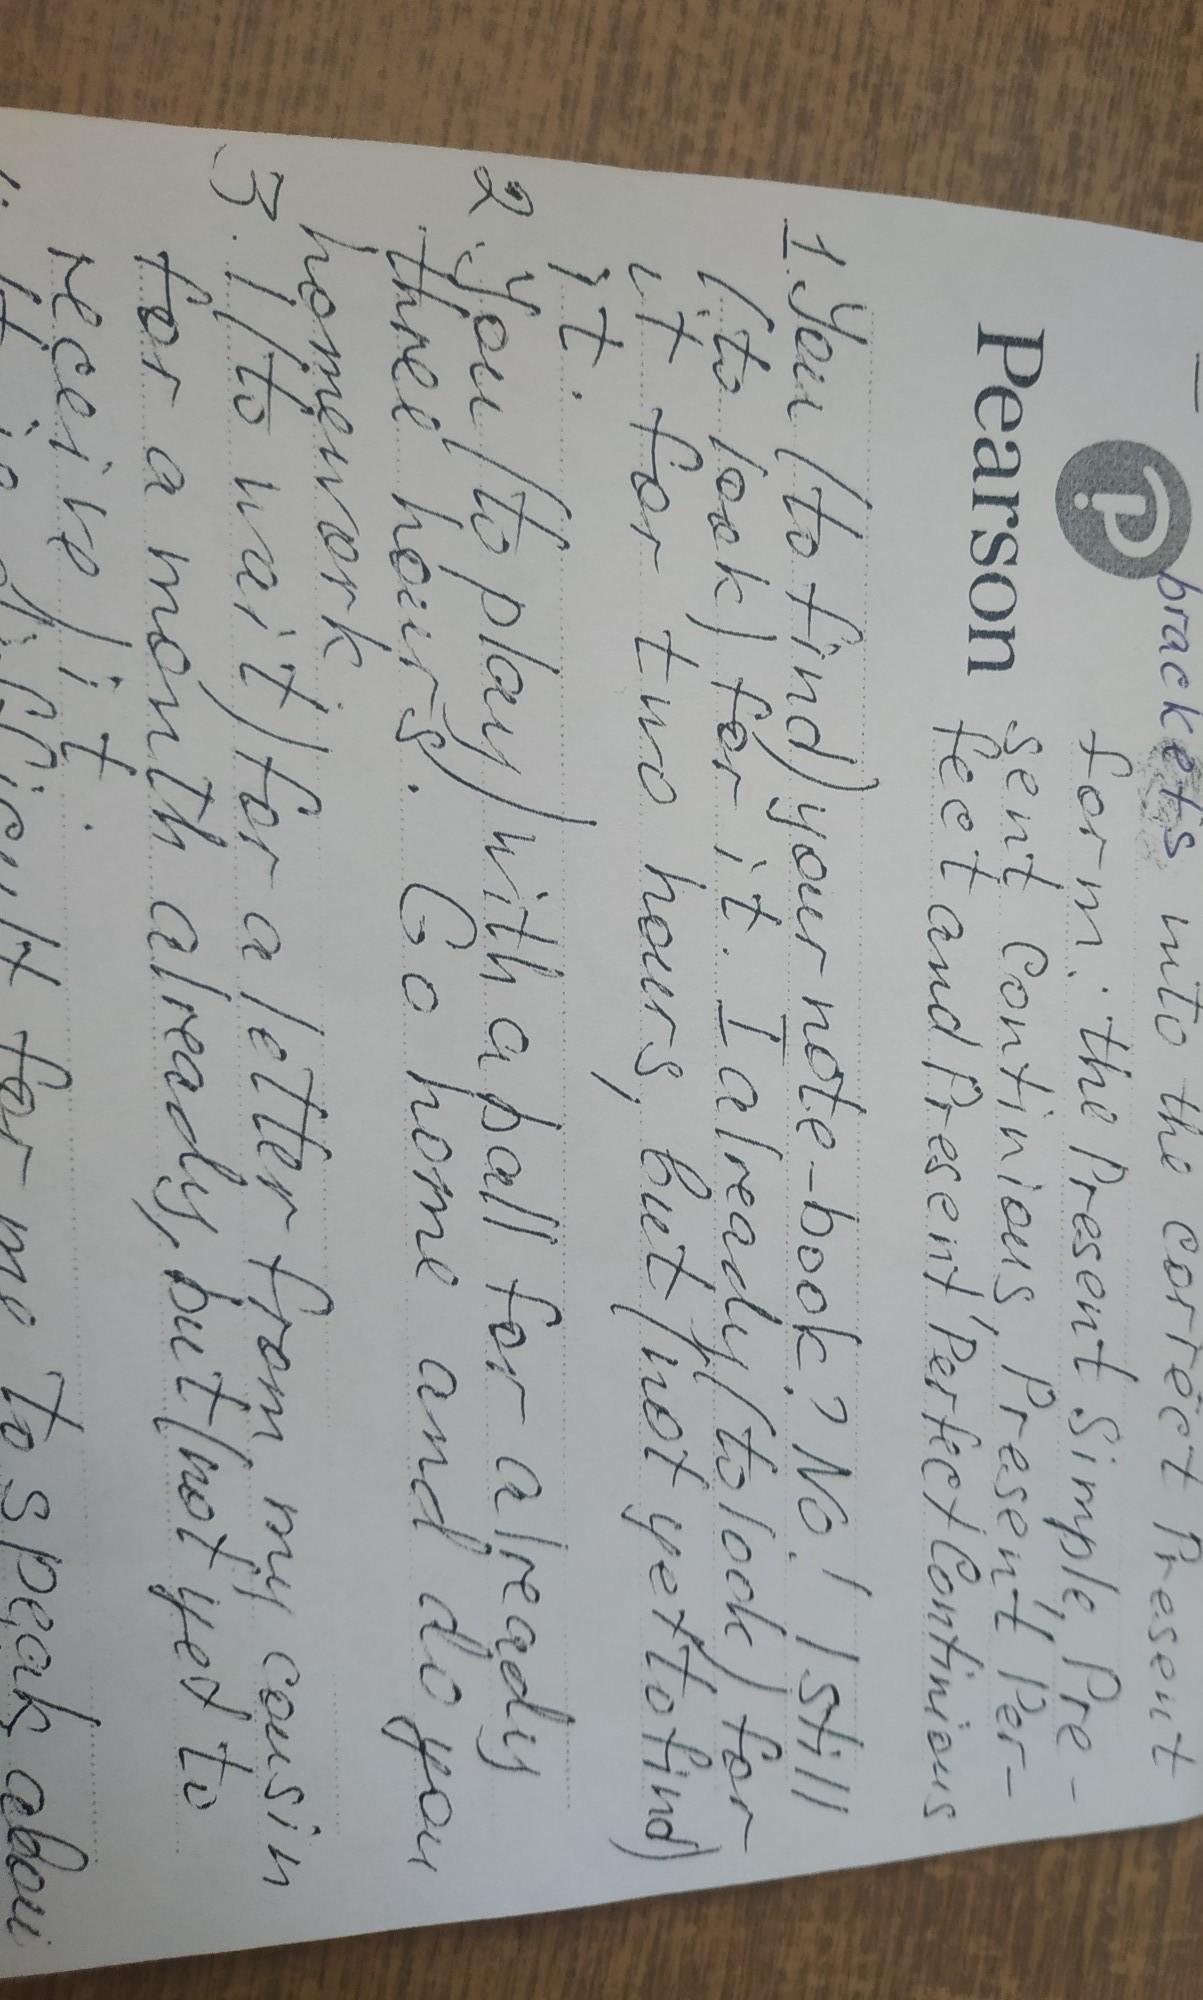 brackets into the correct Present
form: the Present Simple, Pre-
Pearson
sent Continious, Present Per-
fect and Present Perfect Continious
1. You (to find) your note-book? No! I still
(to look) for it. I already (to look) for
it for two hours, but (not yet to find)
it.
2. You (to play) with a ball for already
three hours. Go home and do you
homework
3. I (to wait) for a letter from my cousin
for a month already, but (not yet to
receive) it.
for me to speak